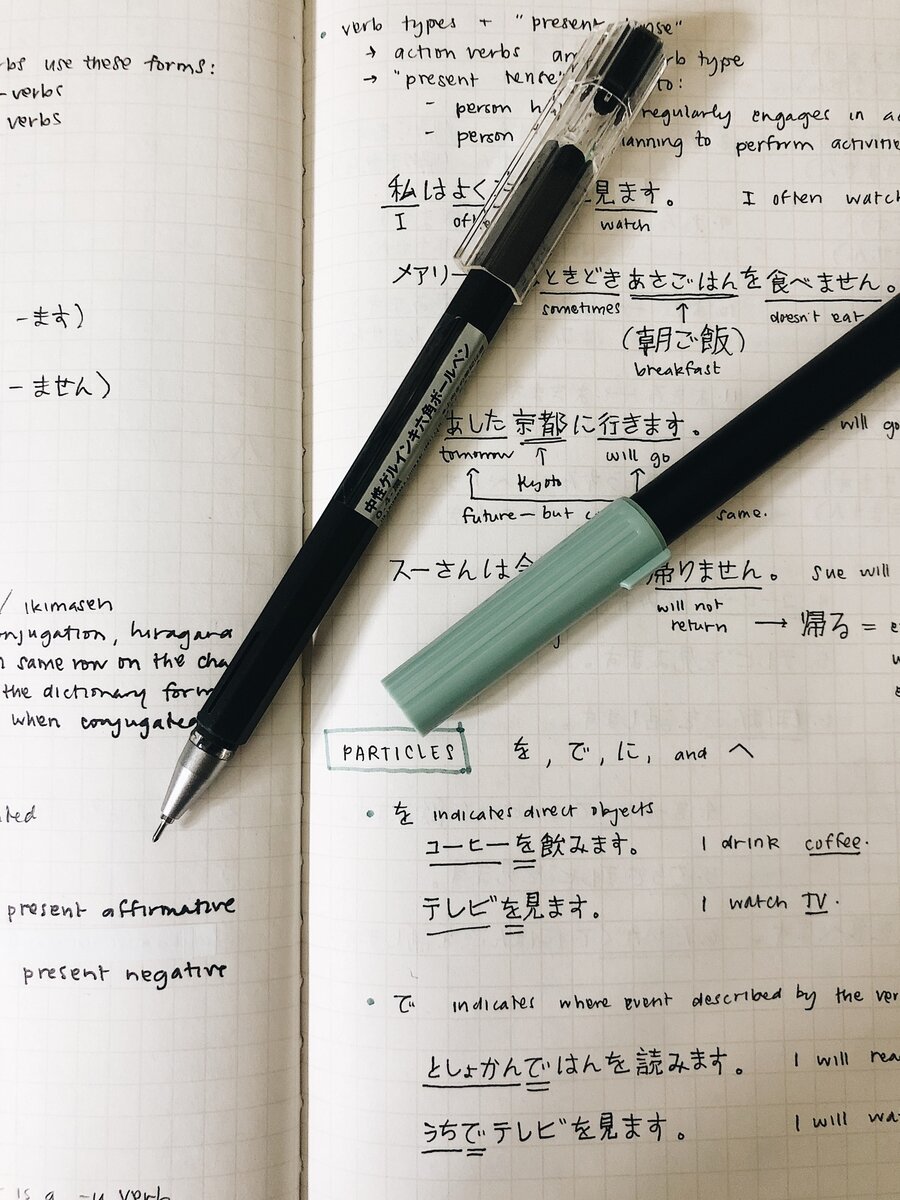 rbs use these forms:
-verbs
verbs
-ます)
-ません)
/ ikimasen
onjugation, hiragana
same row on the cha
the dictionary form
when conjugated
present affirmative
present negative
is a -u verb
• verb types + "present tense"
→ action verbs verb type
→ "present tense" to:
- person regularly engages in
- person planning to perform activitie
私はよく 見ます。 I often watch
I watch
メアリー ときどきあさごはんを食べません。
sometimes doesn't eat
(朝ご飯)
breakfast
あした京都に行きます。 will go
tomorrow will go
Kyoto
future - but same.
スーさんは 帰りません。 Sue will
will not
return → 帰る =
PARTICLES を, で, に, and へ
• を indicates direct objects
コーヒーを飲みます。 I drink coffee.
テレビを見ます。 I watch TV.
• で indicates where event described by the ver
としょかんではんを読みます。 I will rea
うちでテレビを見ます。 I will wa
中性ゲルインキ六角ボールペン